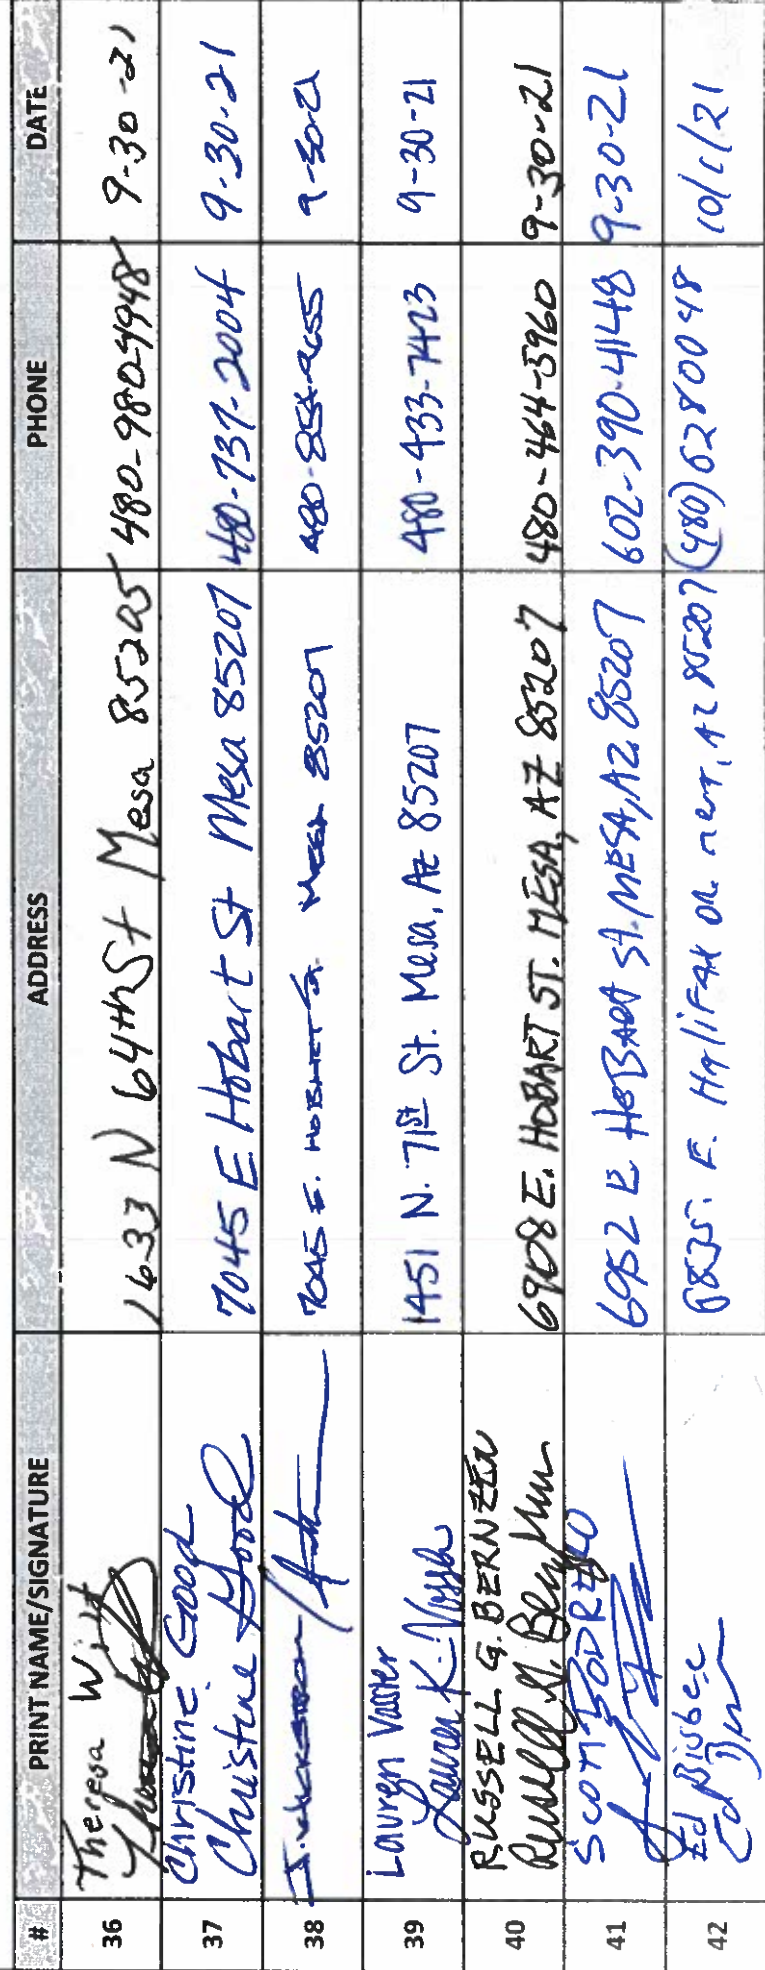 # PRINT NAME/SIGNATURE ADDRESS PHONE DATE
36 Theresa Wilt 1633 N 64th St Mesa 85205 480-980-4948 9-30-21
37 Christine Good 7045 E Hobart St Mesa 85207 480-737-2004 9-30-21
Christine Good
38 7045 E. HOBART St. MESA 85207 480-854-9655 9-30-21
39 Lauren Vassler 1451 N. 71st St. Mesa, Az 85207 480-433-7423 9-30-21
Lauren K. Vassler
40 RUSSELL G. BERNZEN 6908 E. HOBART ST. MESA, AZ 85207 480-464-5960 9-30-21
Russell G. Bernzen
41 SCOTT BODRERO 6952 E HOBART St. MESA, AZ. 85207 602-390-4148 9-30-21
42 Ed Bisbee 6835. E. Halifax DR MESA, AZ 85207 (480) 6280048 10/1/21